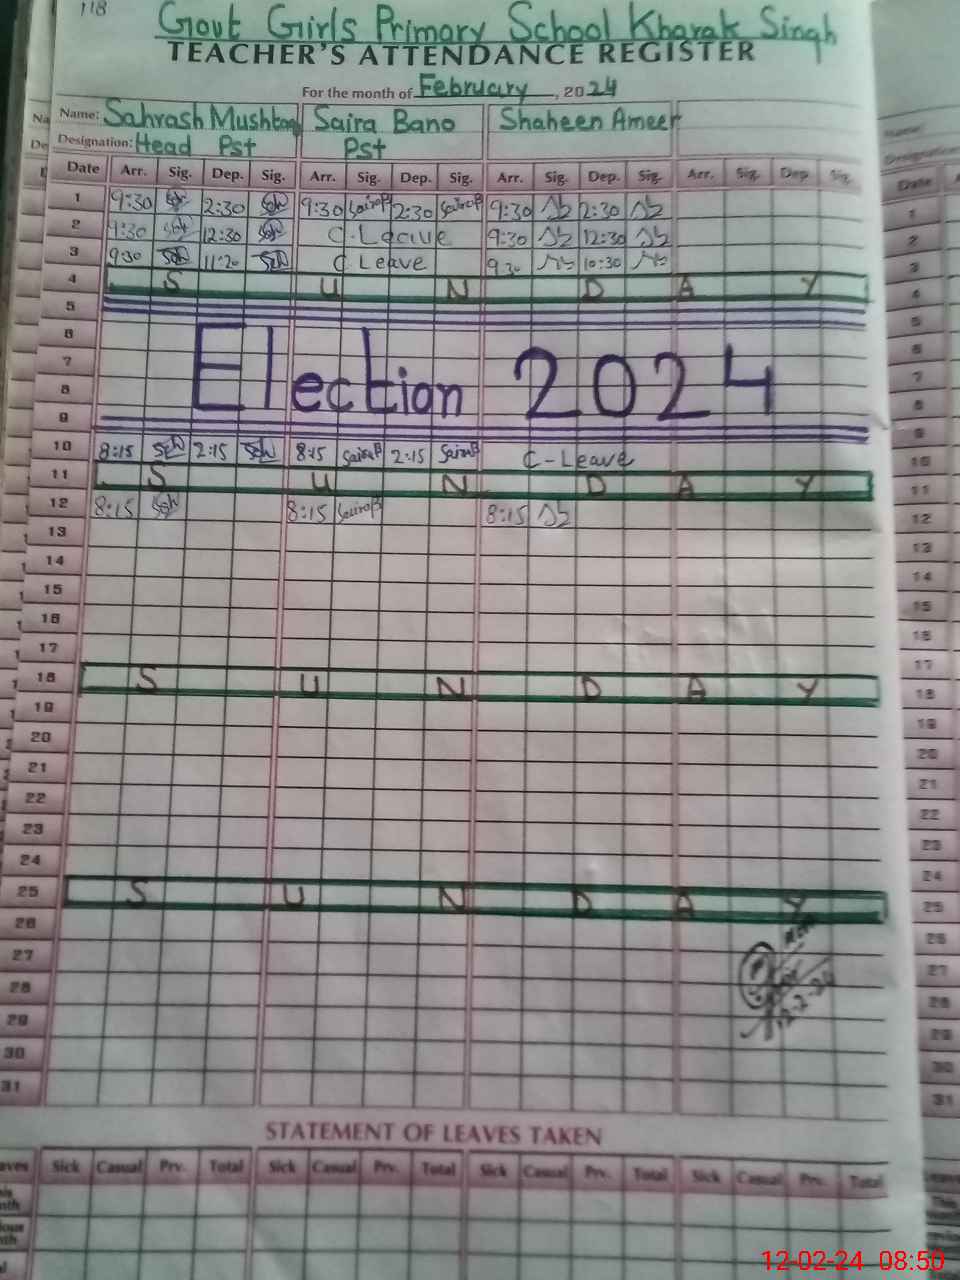 118
Govt Girls Primary School Kharak Singh
TEACHER'S ATTENDANCE REGISTER
For the month of February, 2024
Name: Sahrash Mushtaq Saira Bano Shaheen Ameer
Designation: Head Pst Pst
Date Arr. Sig. Dep. Sig. Arr. Sig. Dep. Sig. Arr. Sig. Dep. Sig. Arr. Sig. Dep Sig.
1 9:30 2:30 9:30 SairaB 2:30 SairaB 9:30 2:30
2 9:30 12:30 C-Leave 9:30 12:30
3 9:30 11:20 C Leave 9:30 10:30
4 S U N D A Y
5
6
7 Election 2024
8
9
10 8:15 2:15 8:15 SairaB 2:15 SairaB C-Leave
11 S U N D A Y
12 8:15 8:15 SairaB 8:15
13
14
15
16
17
18 S U N D A Y
19
20
21
22
23
24
25 S U N D A Y
26
27
28
29
30
31
12-2-24
STATEMENT OF LEAVES TAKEN
Sick Casual Prv. Total Sick Casual Prv. Total Sick Casual Prv. Total Sick Casual Prv. Total
12-02-24 08:50